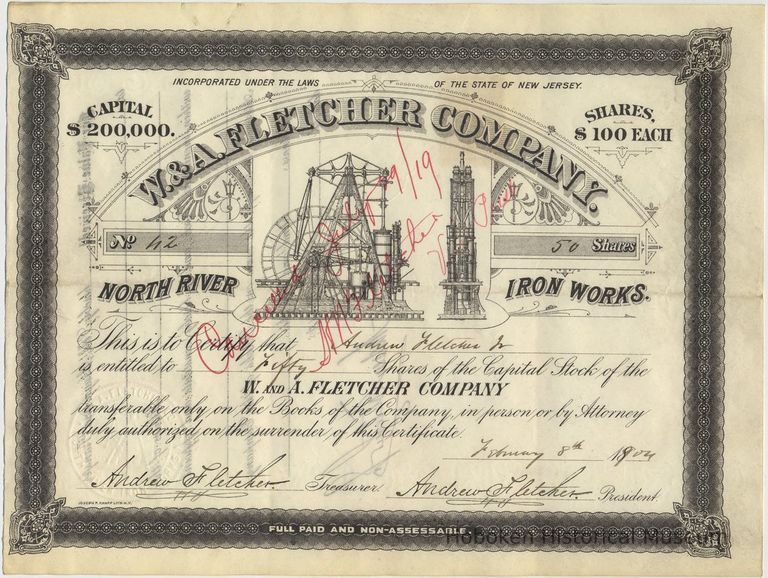 INCORPORATED UNDER THE LAWS OF THE STATE OF NEW JERSEY.
CAPITAL
$200,000.
SHARES,
$100 EACH
W. & A. FLETCHER COMPANY.
No 42
50 Shares
NORTH RIVER IRON WORKS.
This is to Certify that Andrew Fletcher Jr
is entitled to Fifty Shares of the Capital Stock of the
W. AND A. FLETCHER COMPANY
transferable only on the Books of the Company, in person or by Attorney
duly authorized, on the surrender of this Certificate.
February 8th 1904
Andrew Fletcher. Treasurer. Andrew Fletcher. President.
JOSEPH P. KNAPP LITH. N.Y.
FULL PAID AND NON-ASSESSABLE.
Hoboken Historical Museum